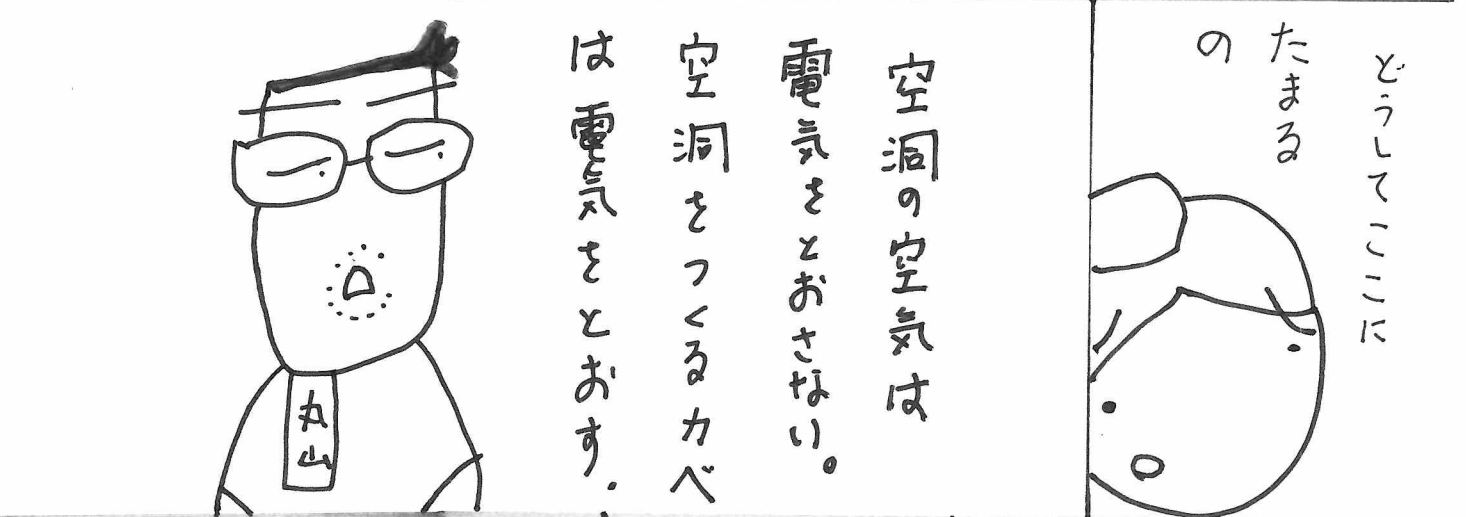 どうしてここに
たまる
の
空洞の空気は
電気をとおさない。
空洞をつくるカベ
は電気をとおす.
丸山